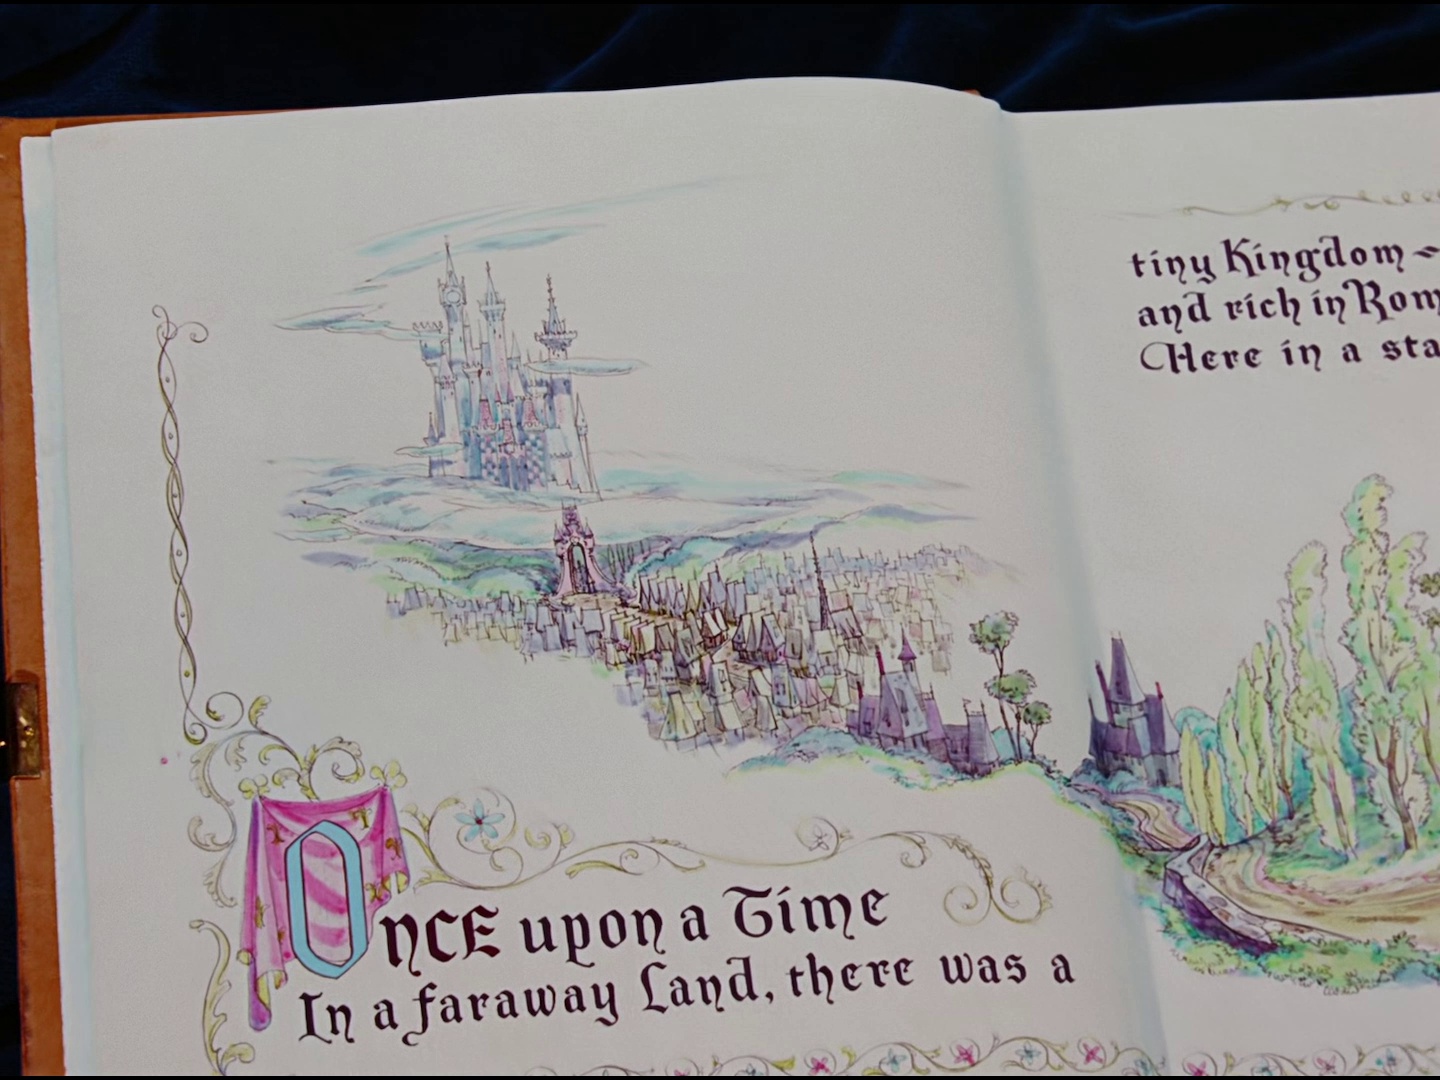 ONCE upon a Time
In a faraway Land, there was a
tiny Kingdom ~
and rich in
Here in a